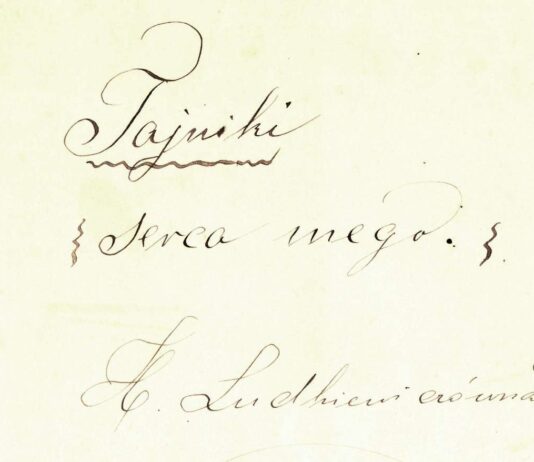 Tajniki
{ serca mego. }
H. Ludkiewiczówna